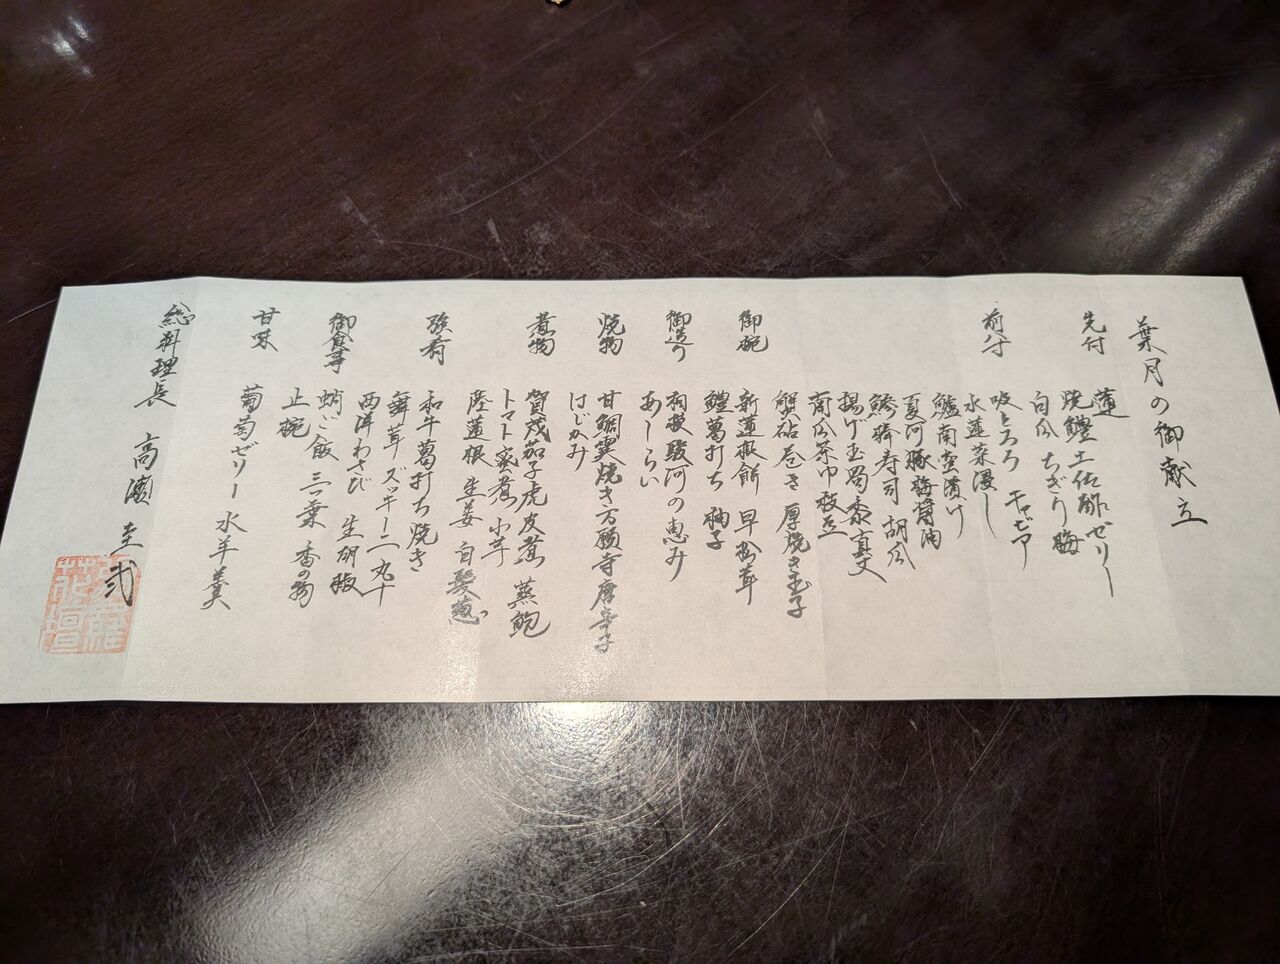 葉月の御献立
先付
蓮
焼鱧土佐酢ゼリー
白瓜 ちぎり梅
吸とろろ キャビア
前八寸
水蓮菜浸し
鱸南蛮漬け
夏河豚梅醤油
鯵棒寿司 胡瓜
揚げ玉蜀黍真丈
南瓜茶巾 枝豆
蟹砧巻き 厚焼き玉子
御椀
新蓮根餅 早松茸
鱧葛打ち 柚子
御造り
相模駿河の恵み
あしらい
焼物
甘鯛雲焼き 万願寺唐辛子
はじかみ
煮物
賀茂茄子虎皮煮 蒸鮑
トマト蜜煮 小芋
陸蓮根 生姜 白髪葱
強肴
和牛葛打ち焼き
舞茸 ズッキーニ 丸十
西洋わさび 生胡椒
御食事
蛸ご飯 三つ葉 香の物
止椀
甘味
葡萄ゼリー 水羊羹
総料理長 高瀬 圭弐